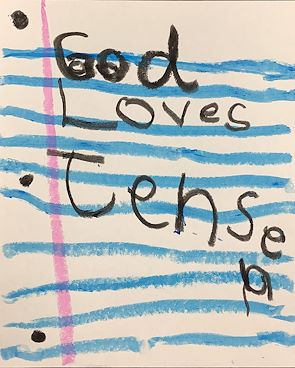 God
Loves
Tense